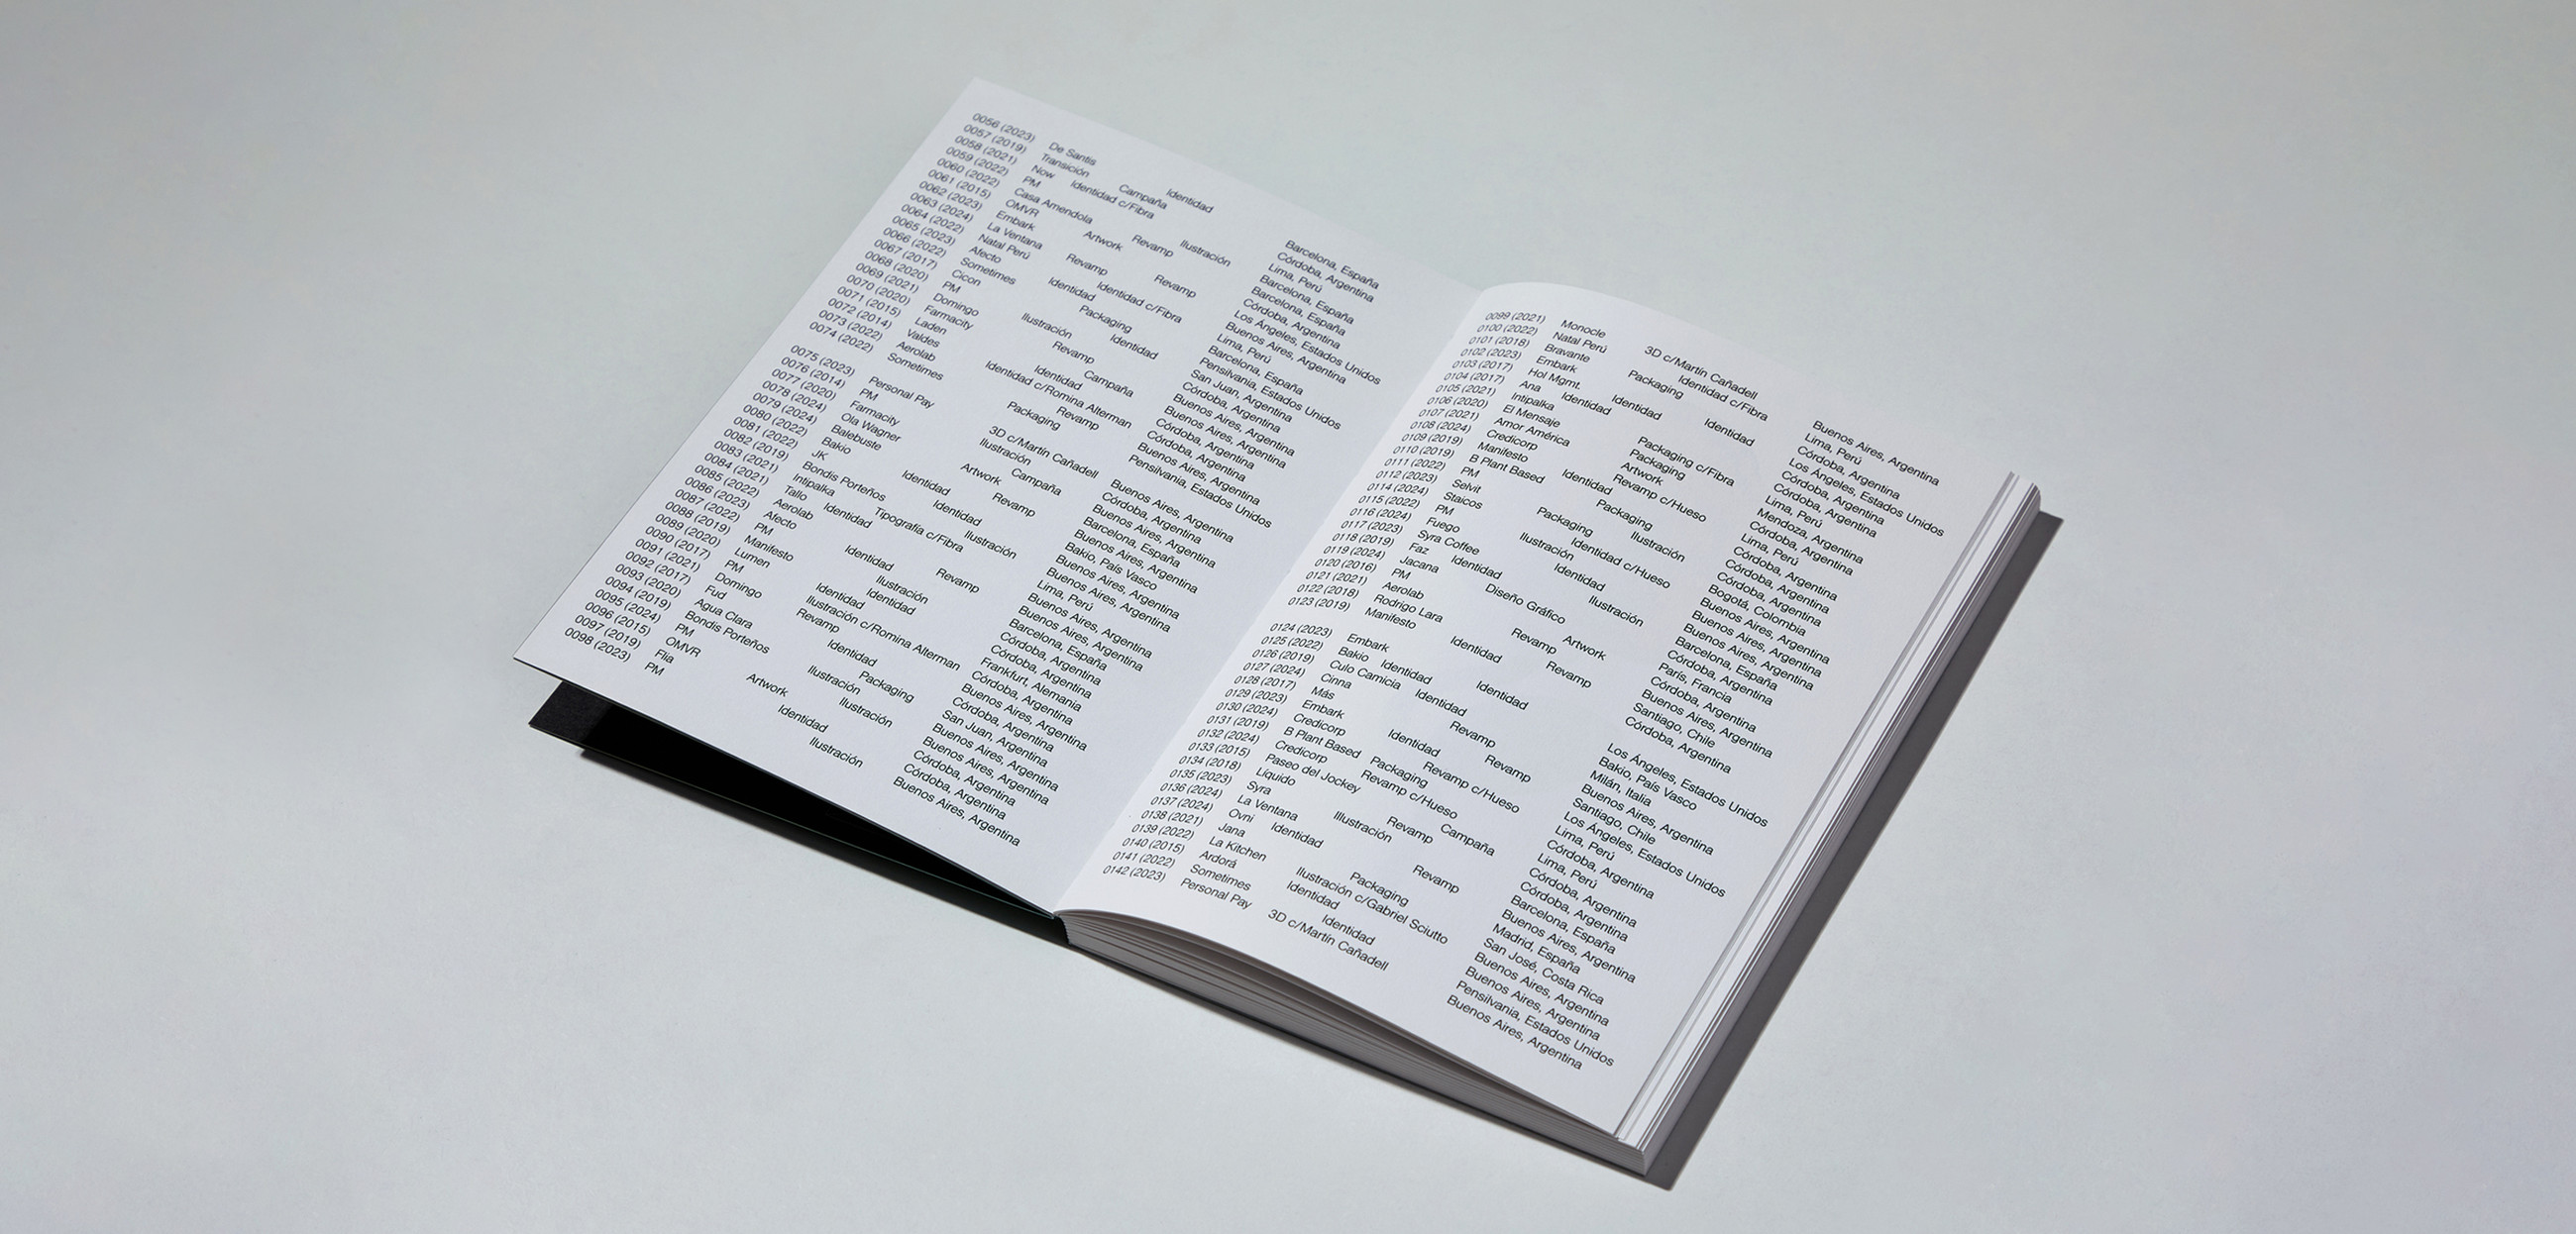 0056 (2023) De Santis Identidad Barcelona, España
0057 (2019) Transición Campaña Córdoba, Argentina
0058 (2021) Now Identidad c/Fibra Lima, Perú
0059 (2022) PM Ilustración Barcelona, España
0060 (2022) Casa Amendola Revamp Barcelona, España
0061 (2015) OMVR Artwork Córdoba, Argentina
0062 (2023) Embark Revamp Los Ángeles, Estados Unidos
0063 (2024) La Ventana Revamp Buenos Aires, Argentina
0064 (2022) Natal Perú Identidad c/Fibra Lima, Perú
0065 (2023) Afecto Identidad Barcelona, España
0066 (2022) Sometimes Packaging Pensilvania, Estados Unidos
0067 (2017) Cicon Identidad San Juan, Argentina
0068 (2020) PM Ilustración Córdoba, Argentina
0069 (2021) Domingo Revamp Buenos Aires, Argentina
0070 (2020) Farmacity Campaña Buenos Aires, Argentina
0071 (2015) Laden Identidad Córdoba, Argentina
0072 (2014) Valdes Identidad c/Romina Alterman Córdoba, Argentina
0073 (2022) Aerolab Revamp Buenos Aires, Argentina
0074 (2022) Sometimes Packaging Pensilvania, Estados Unidos
0075 (2023) Personal Pay 3D c/Martín Cañadell Buenos Aires, Argentina
0076 (2014) PM Ilustración Córdoba, Argentina
0077 (2020) Farmacity Campaña Buenos Aires, Argentina
0078 (2024) Ola Wagner Artwork Barcelona, España
0079 (2024) Balebuste Revamp Buenos Aires, Argentina
0080 (2022) Bakio Identidad Bakio, País Vasco
0081 (2022) JK Identidad Buenos Aires, Argentina
0082 (2019) Bondis Porteños Ilustración Buenos Aires, Argentina
0083 (2021) Intipalka Tipografía c/Fibra Lima, Perú
0084 (2021) Tallo Identidad Buenos Aires, Argentina
0085 (2022) Aerolab Revamp Buenos Aires, Argentina
0086 (2023) Afecto Identidad Barcelona, España
0087 (2022) PM Ilustración Córdoba, Argentina
0088 (2019) Manifesto Identidad Córdoba, Argentina
0089 (2020) Lumen Identidad Frankfurt, Alemania
0090 (2017) PM Ilustración c/Romina Alterman Córdoba, Argentina
0091 (2021) Domingo Revamp Buenos Aires, Argentina
0092 (2017) Fud Identidad Córdoba, Argentina
0093 (2020) Agua Clara Packaging San Juan, Argentina
0094 (2019) Bondis Porteños Ilustración Buenos Aires, Argentina
0095 (2024) PM Ilustración Buenos Aires, Argentina
0096 (2015) OMVR Artwork Córdoba, Argentina
0097 (2019) Flia Identidad Córdoba, Argentina
0098 (2023) PM Ilustración Buenos Aires, Argentina
0099 (2021) Monocle 3D c/Martín Cañadell Buenos Aires, Argentina
0100 (2022) Natal Perú Identidad c/Fibra Lima, Perú
0101 (2018) Bravante Packaging Córdoba, Argentina
0102 (2023) Embark Identidad Los Ángeles, Estados Unidos
0103 (2017) Hol Mgmt. Identidad Córdoba, Argentina
0104 (2017) Ana Identidad Córdoba, Argentina
0105 (2021) Intipalka Packaging c/Fibra Lima, Perú
0106 (2020) El Mensaje Packaging Mendoza, Argentina
0107 (2021) Amor América Artwork Córdoba, Argentina
0108 (2024) Credicorp Revamp c/Hueso Lima, Perú
0109 (2019) Manifesto Identidad Córdoba, Argentina
0110 (2019) B Plant Based Packaging Córdoba, Argentina
0111 (2022) PM Ilustración Córdoba, Argentina
0112 (2023) Selvit Packaging Bogotá, Colombia
0114 (2024) Staicos Identidad c/Hueso Buenos Aires, Argentina
0115 (2022) PM Ilustración Buenos Aires, Argentina
0116 (2024) Fuego Identidad Buenos Aires, Argentina
0117 (2023) Syra Coffee Ilustración Barcelona, España
0118 (2019) Faz Identidad Córdoba, Argentina
0119 (2024) Jacana Diseño Gráfico París, Francia
0120 (2016) PM Artwork Córdoba, Argentina
0121 (2021) Aerolab Revamp Buenos Aires, Argentina
0122 (2018) Rodrigo Lara Revamp Santiago, Chile
0123 (2019) Manifesto Identidad Córdoba, Argentina
0124 (2023) Embark Identidad Los Ángeles, Estados Unidos
0125 (2022) Bakio Identidad Bakio, País Vasco
0126 (2019) Culo Camicia Identidad Milán, Italia
0127 (2024) Cinna Revamp Buenos Aires, Argentina
0128 (2017) Más Revamp Santiago, Chile
0129 (2023) Embark Identidad Los Ángeles, Estados Unidos
0130 (2024) Credicorp Revamp c/Hueso Lima, Perú
0131 (2019) B Plant Based Packaging Córdoba, Argentina
0132 (2024) Credicorp Revamp c/Hueso Lima, Perú
0133 (2015) Paseo del Jockey Campaña Córdoba, Argentina
0134 (2018) Líquido Revamp Córdoba, Argentina
0135 (2023) Syra Illustración Barcelona, España
0136 (2024) La Ventana Revamp Buenos Aires, Argentina
0137 (2024) Ovni Identidad Madrid, España
0138 (2021) Jana Packaging San José, Costa Rica
0139 (2022) La Kitchen Ilustración c/Gabriel Sciutto Buenos Aires, Argentina
0140 (2015) Ardorá Identidad Buenos Aires, Argentina
0141 (2022) Sometimes Identidad Pensilvania, Estados Unidos
0142 (2023) Personal Pay 3D c/Martín Cañadell Buenos Aires, Argentina